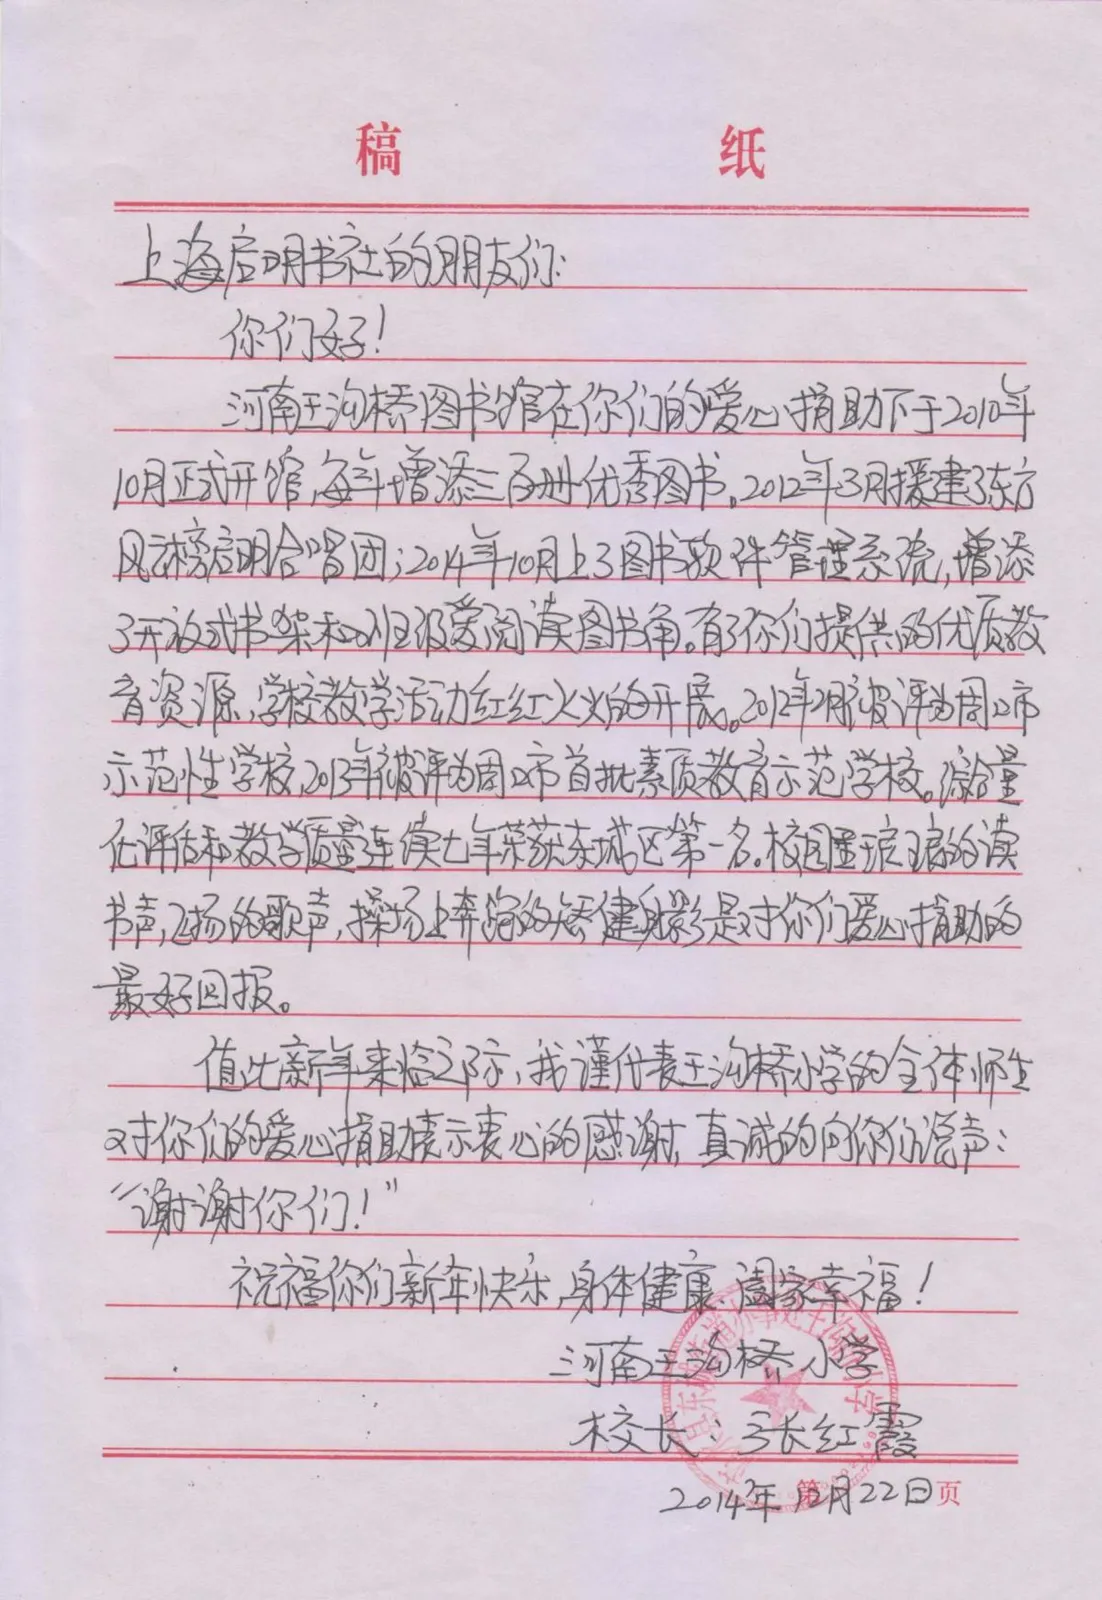 稿 纸
上海启明书社的朋友们:
你们好!
河南王沟桥图书馆在你们的爱心捐助下于2010年
10月正式开馆,每年增添三百册优秀图书。2012年3月援建了东方
风云榜启明合唱团;2014年10月上了图书软件管理系统,增添
了开放式书架和班级爱阅读图书角。有了你们提供的优质教
育资源,学校教学活动红红火火的开展。2012年2月被评为周口市
示范性学校,2013年被评为周口市首批素质教育示范学校。综合量
化评估和教学质量连续七年荣获东城区第一名。校园里琅琅的读
书声,飞扬的歌声,操场上奔跑的矫健身影是对你们爱心捐助的
最好回报。
值此新年来临之际,我谨代表王沟桥小学的全体师生
对你们的爱心捐助表示衷心的感谢,真诚的向你们说声:
“谢谢你们!”
祝福你们新年快乐,身体健康、阖家幸福!
河南王沟桥小学
校长:张红霞
2014年12月22日
第 页